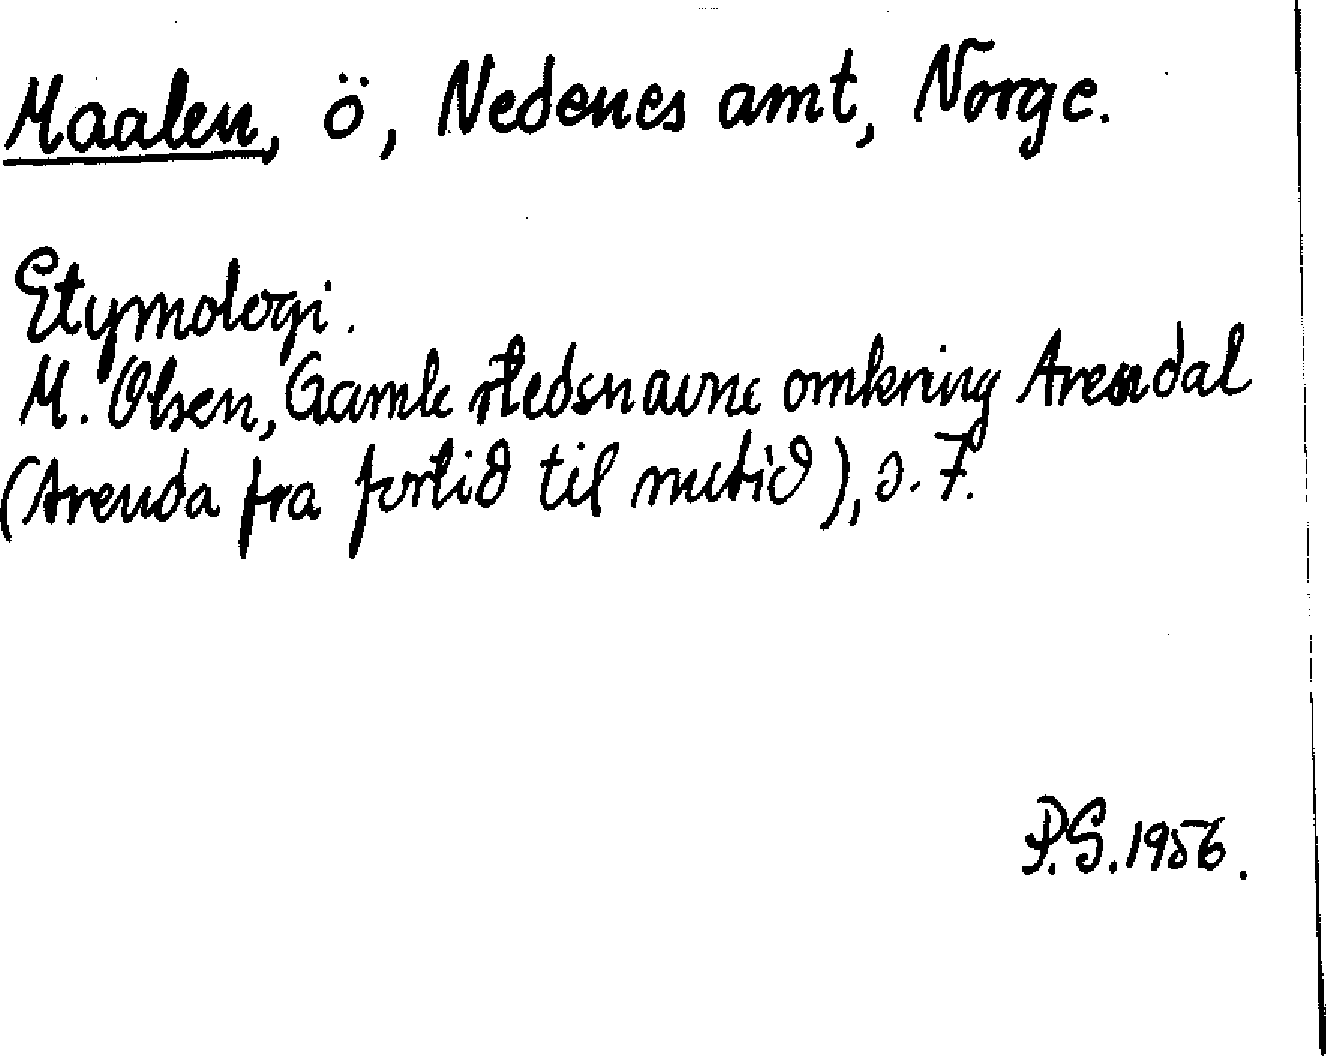 Maalen, ö, Nedenes amt, Norge.
Etymologi.
M. Olsen, Gamle stedsnavne omkring Arendal
(Arenda fra fortid til nutid), s. 7.
P.S. 1956.